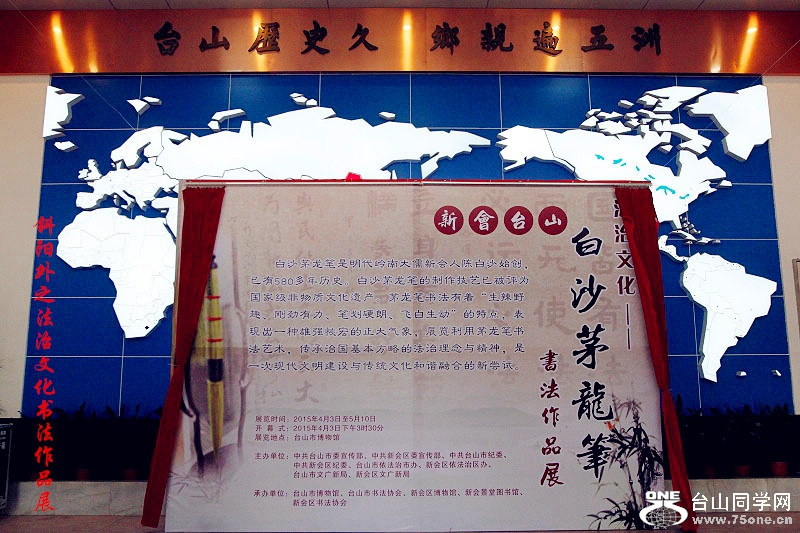 台山歷史久 鄉親遍五洲
新會台山
法治文化——
白沙茅龍筆
書法作品展
白沙茅龙笔是明代岭南大儒新会人陈白沙始创，
已有580多年历史。白沙茅龙笔的制作技艺已被评为
国家级非物质文化遗产。茅龙笔书法有着“生辣野
趣、刚劲有力、笔划硬朗、飞白生动”的特点，表
现出一种雄强恢宏的正大气象，展览利用茅龙笔书
法艺术，传承治国基本方略的法治理念与精神，是
一次现代文明建设与传统文化和谐融合的新尝试。
展览时间：2015年4月3日至5月10日
开 幕 式：2015年4月3日下午3时30分
展览地点：台山市博物馆
主办单位：中共台山市委宣传部、中共新会区委宣传部、中共台山市纪委、
中共新会区纪委、台山市依法治市办、新会区依法治区办、
台山市文广新局、新会区文广新局
承办单位：台山市博物馆、台山市书法协会、新会区博物馆、新会景堂图书馆、
新会区书法协会
斜阳外之法治文化书法作品展
ONE
75
台山同学网
www.75one.cn